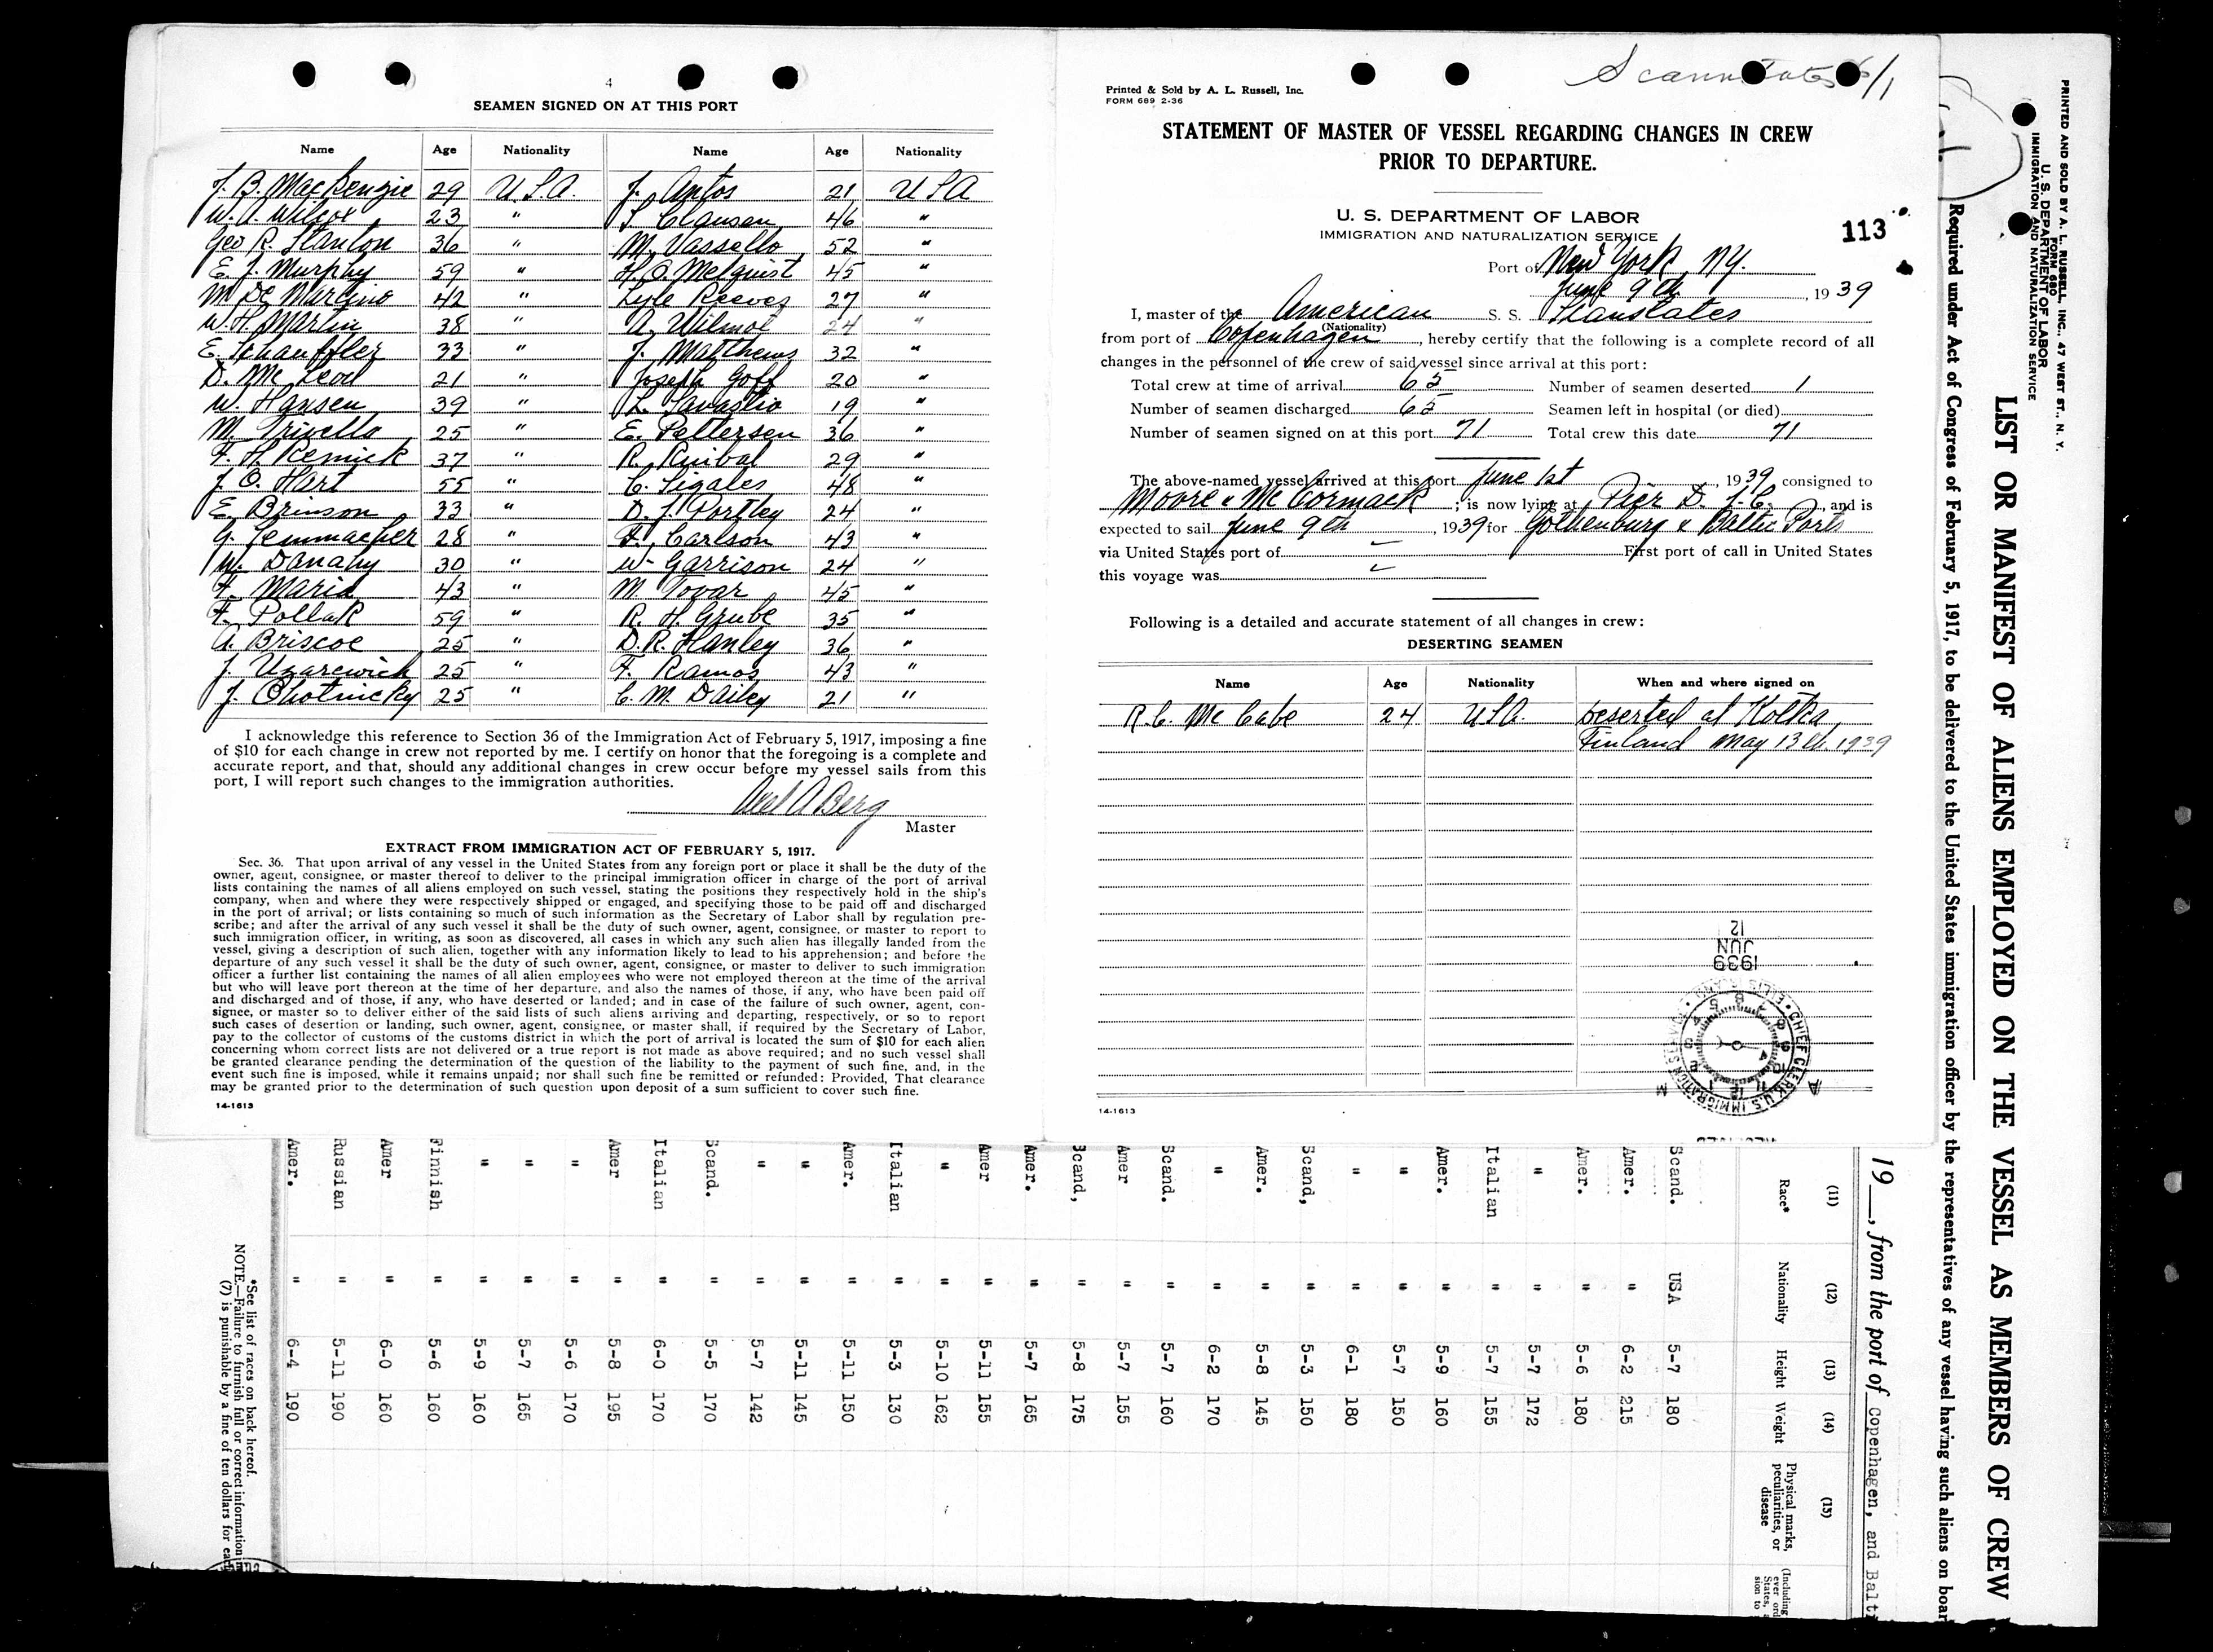 4
SEAMEN SIGNED ON AT THIS PORT
Name Age Nationality Name Age Nationality
J. B. MacKenzie 29 U.S.A. J. Antos 21 U S A
W. A. Wilcox 23 " S Clausen 46 "
Geo R. Stanton 36 " M. Vassello 52 "
E. J. Murphy 59 " H. O. Melquist 45 "
M De Martino 42 " Lyle Reeves 27 "
W. H. Martin 38 " A. Wilmot 24 "
E. Schauffler 33 " J. Matthews 32 "
D. Mc Leod 21 " Joseph Goff 20 "
W. Hansen 39 " L. Savastio 19 "
M. Trivello 25 " E. Pettersen 36 "
F. H. Remick 37 " R. Knibal 29 "
J. O. Hart 55 " C. Sigales 48 "
E Brinson 33 " D. J. Portley 24 "
G. Temmacher 28 " F. Carlson 43 "
W. Danahy 30 " W. Garrison 24 "
F. Maria 43 " M. Tovar 45 "
F. Pollak 59 " R. H. Grube 35 "
A. Briscoe 25 " D. R. Hanley 36 "
J. Uzarewich 25 " F. Ramos 43 "
J. Chotnicky 25 " C. M. Dailey 21 "
I acknowledge this reference to Section 36 of the Immigration Act of February 5, 1917, imposing a fine
of $10 for each change in crew not reported by me. I certify on honor that the foregoing is a complete and
accurate report, and that, should any additional changes in crew occur before my vessel sails from this
port, I will report such changes to the immigration authorities.
Axel A Berg
Master
EXTRACT FROM IMMIGRATION ACT OF FEBRUARY 5, 1917.
Sec. 36. That upon arrival of any vessel in the United States from any foreign port or place it shall be the duty of the
owner, agent, consignee, or master thereof to deliver to the principal immigration officer in charge of the port of arrival
lists containing the names of all aliens employed on such vessel, stating the positions they respectively hold in the ship's
company, when and where they were respectively shipped or engaged, and specifying those to be paid off and discharged
in the port of arrival; or lists containing so much of such information as the Secretary of Labor shall by regulation pre-
scribe; and after the arrival of any such vessel it shall be the duty of such owner, agent, consignee, or master to report to
such immigration officer, in writing, as soon as discovered, all cases in which any such alien has illegally landed from the
vessel, giving a description of such alien, together with any information likely to lead to his apprehension; and before the
departure of any such vessel it shall be the duty of such owner, agent, consignee, or master to deliver to such immigration
officer a further list containing the names of all alien employees who were not employed thereon at the time of the arrival
but who will leave port thereon at the time of her departure, and also the names of those, if any, who have been paid off
and discharged and of those, if any, who have deserted or landed; and in case of the failure of such owner, agent, con-
signee, or master so to deliver either of the said lists of such aliens arriving and departing, respectively, or so to report
such cases of desertion or landing, such owner, agent, consignee, or master shall, if required by the Secretary of Labor,
pay to the collector of customs of the customs district in which the port of arrival is located the sum of $10 for each alien
concerning whom correct lists are not delivered or a true report is not made as above required; and no such vessel shall
be granted clearance pending the determination of the question of the liability to the payment of such fine, and, in the
event such fine is imposed, while it remains unpaid; nor shall such fine be remitted or refunded: Provided, That clearance
may be granted prior to the determination of such question upon deposit of a sum sufficient to cover such fine.
14-1613
Scanstates 6/1
Printed & Sold by A. L. Russell, Inc.
FORM 689 2-36
STATEMENT OF MASTER OF VESSEL REGARDING CHANGES IN CREW
PRIOR TO DEPARTURE.
U. S. DEPARTMENT OF LABOR
IMMIGRATION AND NATURALIZATION SERVICE
113
Port of New York, NY.
June 9th, 1939
I, master of the American S. S. Scanstates
(Nationality)
from port of Copenhagen, hereby certify that the following is a complete record of all
changes in the personnel of the crew of said vessel since arrival at this port:
Total crew at time of arrival 65 Number of seamen deserted 1
Number of seamen discharged 65 Seamen left in hospital (or died)
Number of seamen signed on at this port 71 Total crew this date 71
The above-named vessel arrived at this port June 1st, 1939 consigned to
Moore & McCormack; is now lying at Pier D. J. C., and is
expected to sail June 9th, 1939 for Gothenburg & Baltic Ports
via United States port of First port of call in United States
this voyage was
Following is a detailed and accurate statement of all changes in crew:
DESERTING SEAMEN
Name Age Nationality When and where signed on
R. C. Mc Cabe 24 USA. Deserted at Kotka,
Finland May 13th 1939
12
JUN
1939
CHIEF CLERK, U.S. IMMIGRATION SERVICE, ELLIS ISLAND
14-1613
PRINTED AND SOLD BY A. L. RUSSELL, INC., 47 WEST ST., N. Y.
FORM 680
U. S. DEPARTMENT OF LABOR
IMMIGRATION AND NATURALIZATION SERVICE
LIST OR MANIFEST OF ALIENS EMPLOYED ON THE VESSEL AS MEMBERS OF CREW
Required under Act of Congress of February 5, 1917, to be delivered to the United States immigration officer by the representatives of any vessel having such aliens on boar
19__, from the port of Copenhagen, and Balti
(11) (12) (13) (14) (15)
Race* Nationality Height Weight Physical marks, peculiarities, or disease
Scand. USA 5-7 180
Amer. " 6-2 215
Amer. " 5-6 180
" " 5-7 172
Italian " 5-7 155
Amer. " 5-9 160
" " 5-7 150
" " 6-1 180
Scand, " 5-3 150
Amer. " 5-8 145
" " 6-2 170
Scand. " 5-7 160
Amer " 5-7 155
Scand, " 5-8 175
Amer. " 5-7 165
Amer " 5-11 155
" " 5-10 162
Italian " 5-3 130
Amer. " 5-11 150
" " 5-11 145
" " 5-7 142
Scand. " 5-5 170
Italian " 6-0 170
Amer " 5-8 195
" " 5-6 170
" " 5-7 165
" " 5-9 160
Finnish " 5-6 160
Amer " 6-0 160
Russian " 5-11 190
Amer. " 6-4 190
*See list of races on back hereof.
NOTE.—Failure to furnish full or correct information
(7) is punishable by a fine of ten dollars for eac